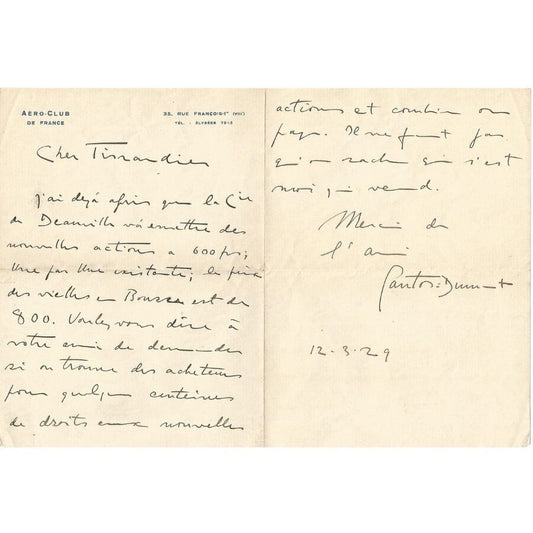 AÉRO-CLUB
DE FRANCE
35, RUE FRANÇOIS-Iᵉʳ (VIIIᵉ)
TÉL. : ÉLYSÉES
Cher Tissandier
j'ai déjà apris que la Cie
de Deauville va émettre des
nouvelles actions a 600 frs;
Une par Une existante; le prix
des vielles en Bourse est de
800. Voulez vous dire à
votre amie de demander
si on trouve des acheteurs
pour quelques centeines
de droits aux nouvelles
actions et combien on
paye. Il ne faut pas
qu'on sache que s'est
moi qui vend.
Merci de
l'ami
Santos=Dumont
12-3-29